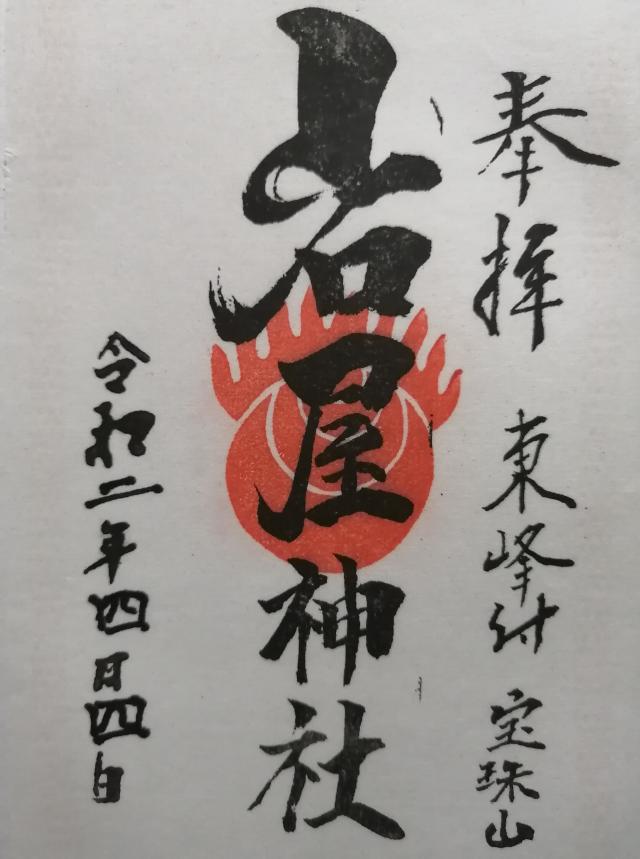 奉拝 東峰村 宝珠山
岩屋神社
令和二年四月四日